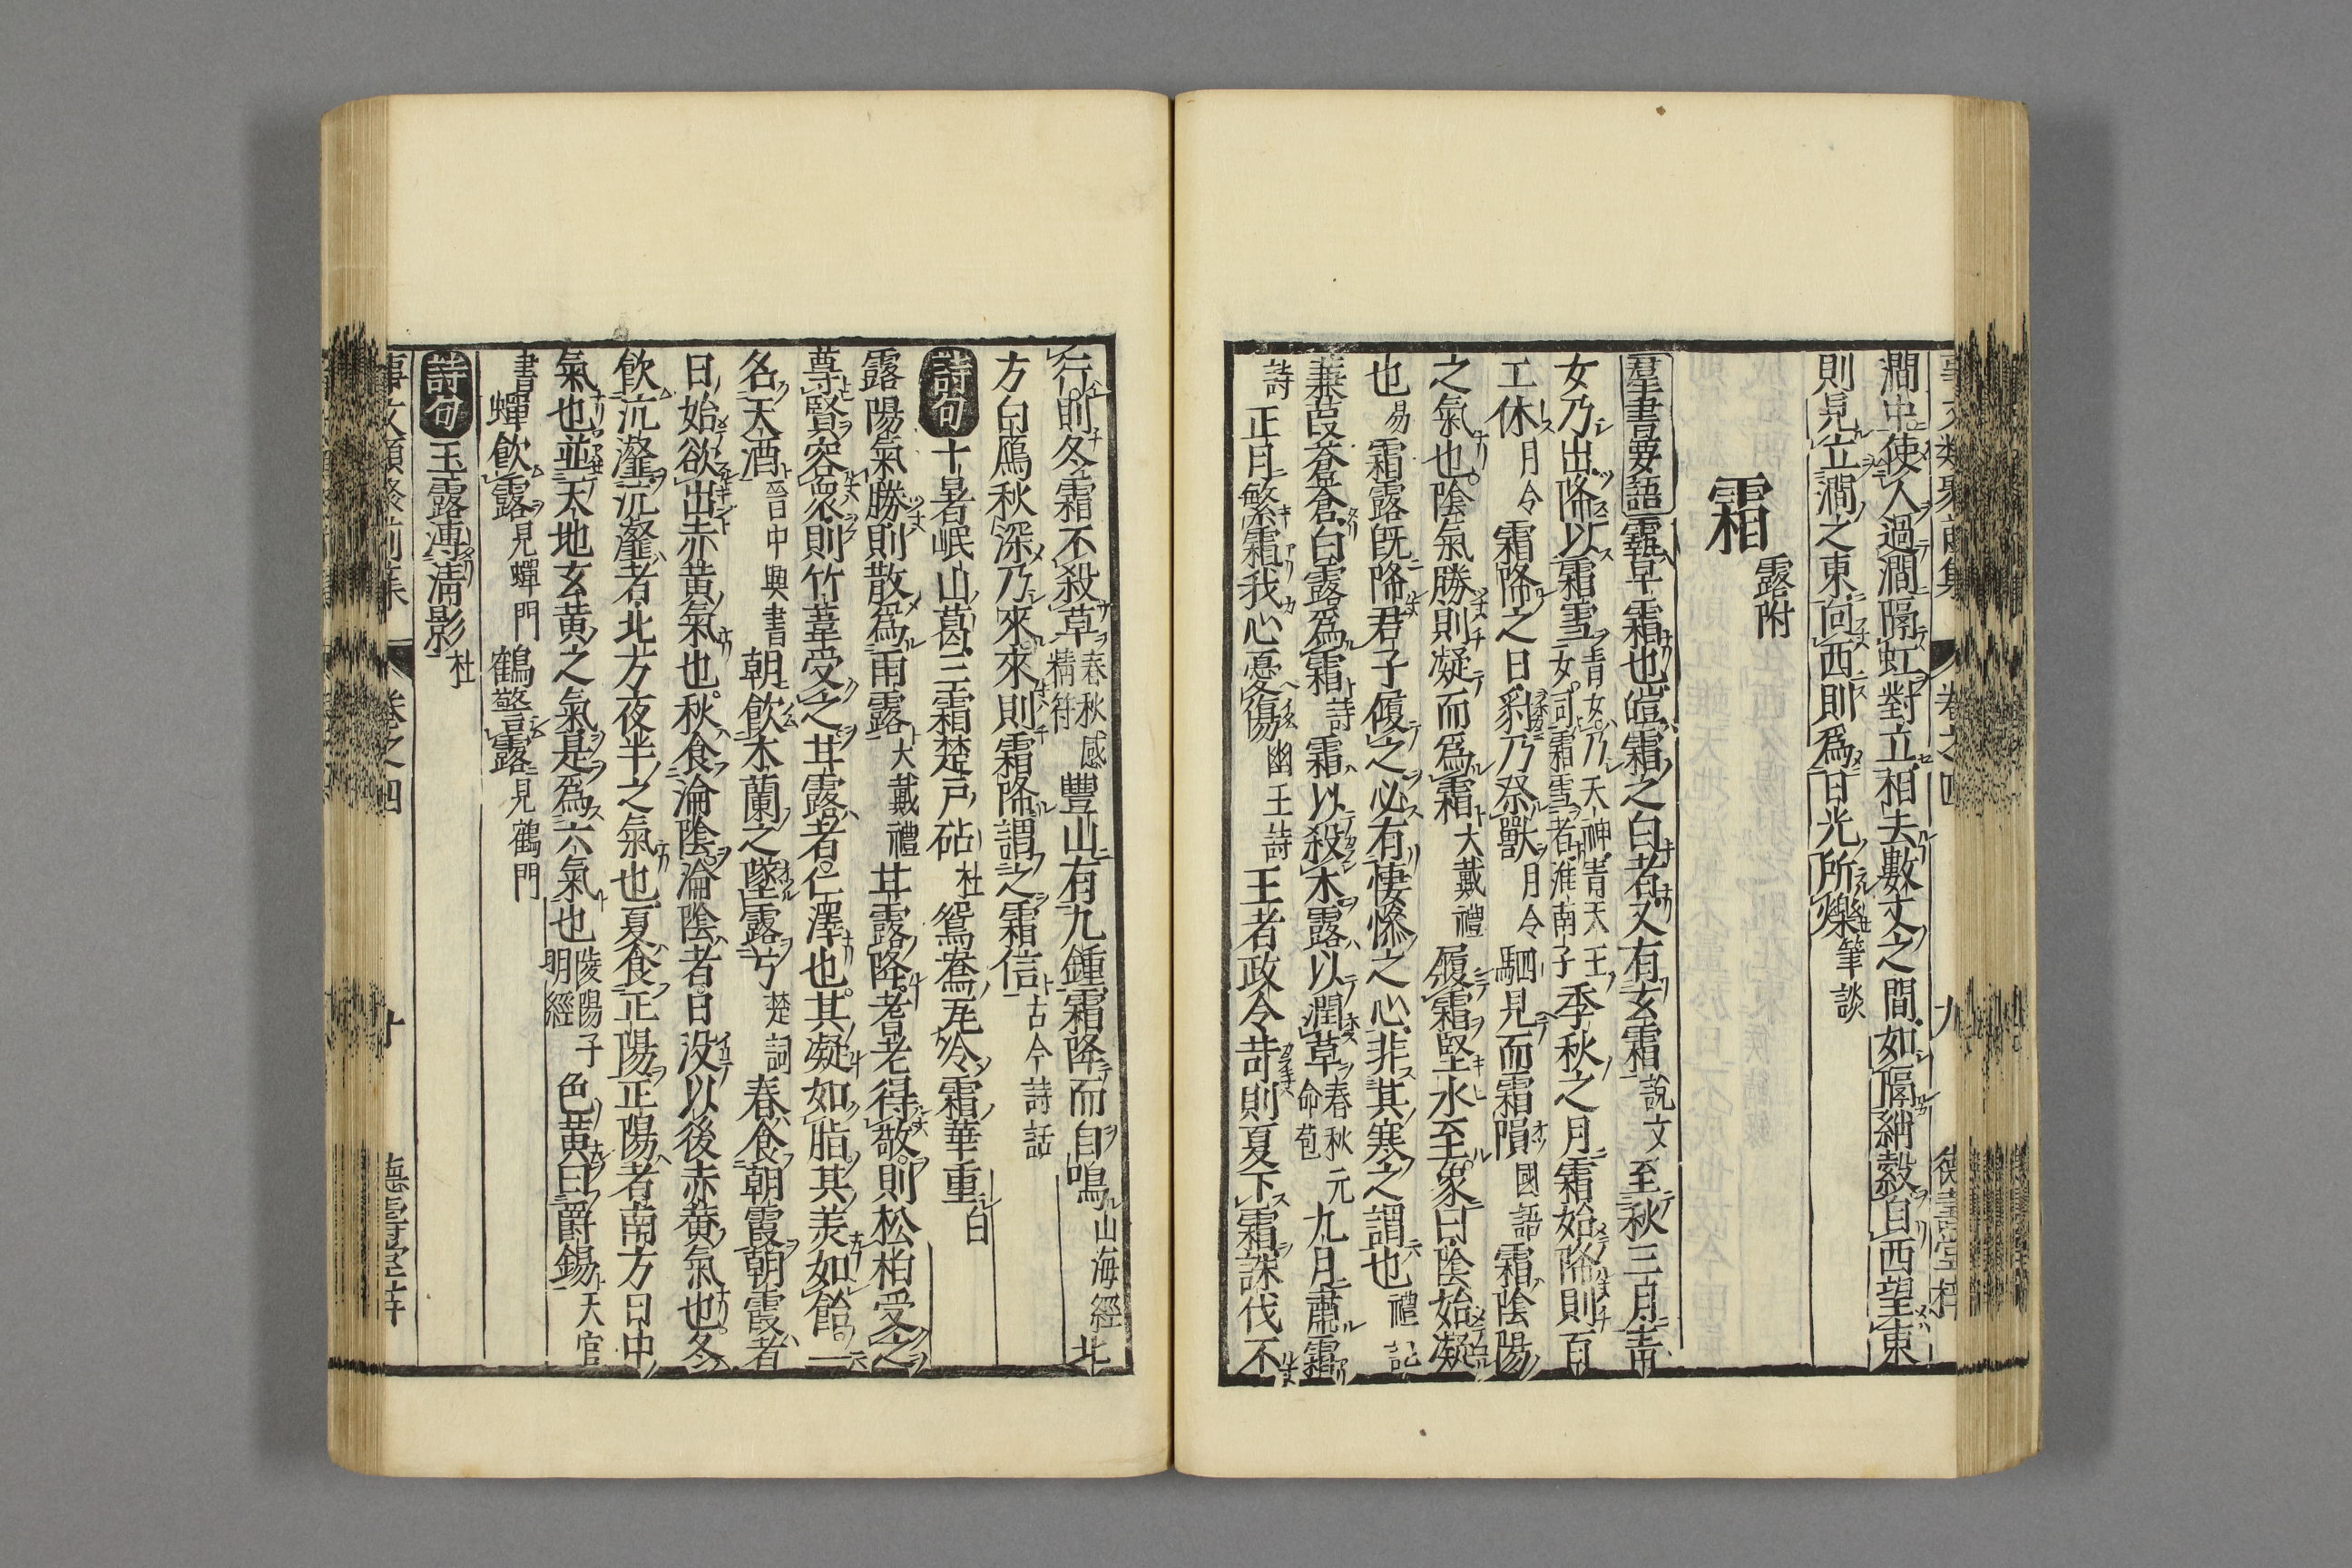 澗中使人過澗隔虹對立相去數丈之間如隔綃縠自西望東
則見立澗之東向西則爲日光所爍筆談
霜露附
羣書要語霜早霜也皚霜之白者又有玄霜說文至秋三月青
女乃出降以霜雪青女乃天神青天王女司霜雪者淮南子季秋之月霜始降則百
工休月令霜降之日豺乃祭獸月令駟見而霜隕國語霜陰陽
之氣也陰氣勝則凝而爲霜大戴禮履霜堅氷至象曰陰始凝
也易霜露旣降君子履之必有悽愴之心非其寒之謂也禮記
蒹葭蒼蒼白露爲霜詩霜以殺木露以潤草春秋元命苞九月肅霜
詩正月繁霜我心憂傷幽王詩王者政令苛則夏下霜誅伐不
行則冬霜不殺草春秋感精符豐山有九鍾霜降而自鳴山海經北
方白鴈秋深乃來來則霜降謂之霜信古今詩話
詩句十暑岷山葛三霜楚戸砧杜鴛鴦瓦冷霜華重白
露陽氣勝則散爲雨露大戴禮甘露降耆老得敬則松柏受之
尊賢容衆則竹葦受之甘露者仁澤也其凝如脂其美如飴一
名天酒晉中興書朝飲木蘭之墜露兮楚詞春食朝霞朝霞者
日始欲出赤黄氣也秋食淪陰淪陰者日没以後赤黄氣也冬
飲沆瀣沆瀣者北方夜半之氣也夏食正陽正陽者南方日中
氣也並天地玄黄之氣是爲六氣也陵陽子明經色黄曰爵錫天官
書蟬飲露見蟬門鶴警露見鶴門
詩句玉露漙清影杜
事文類聚前集 卷之四 廿 德壽堂梓